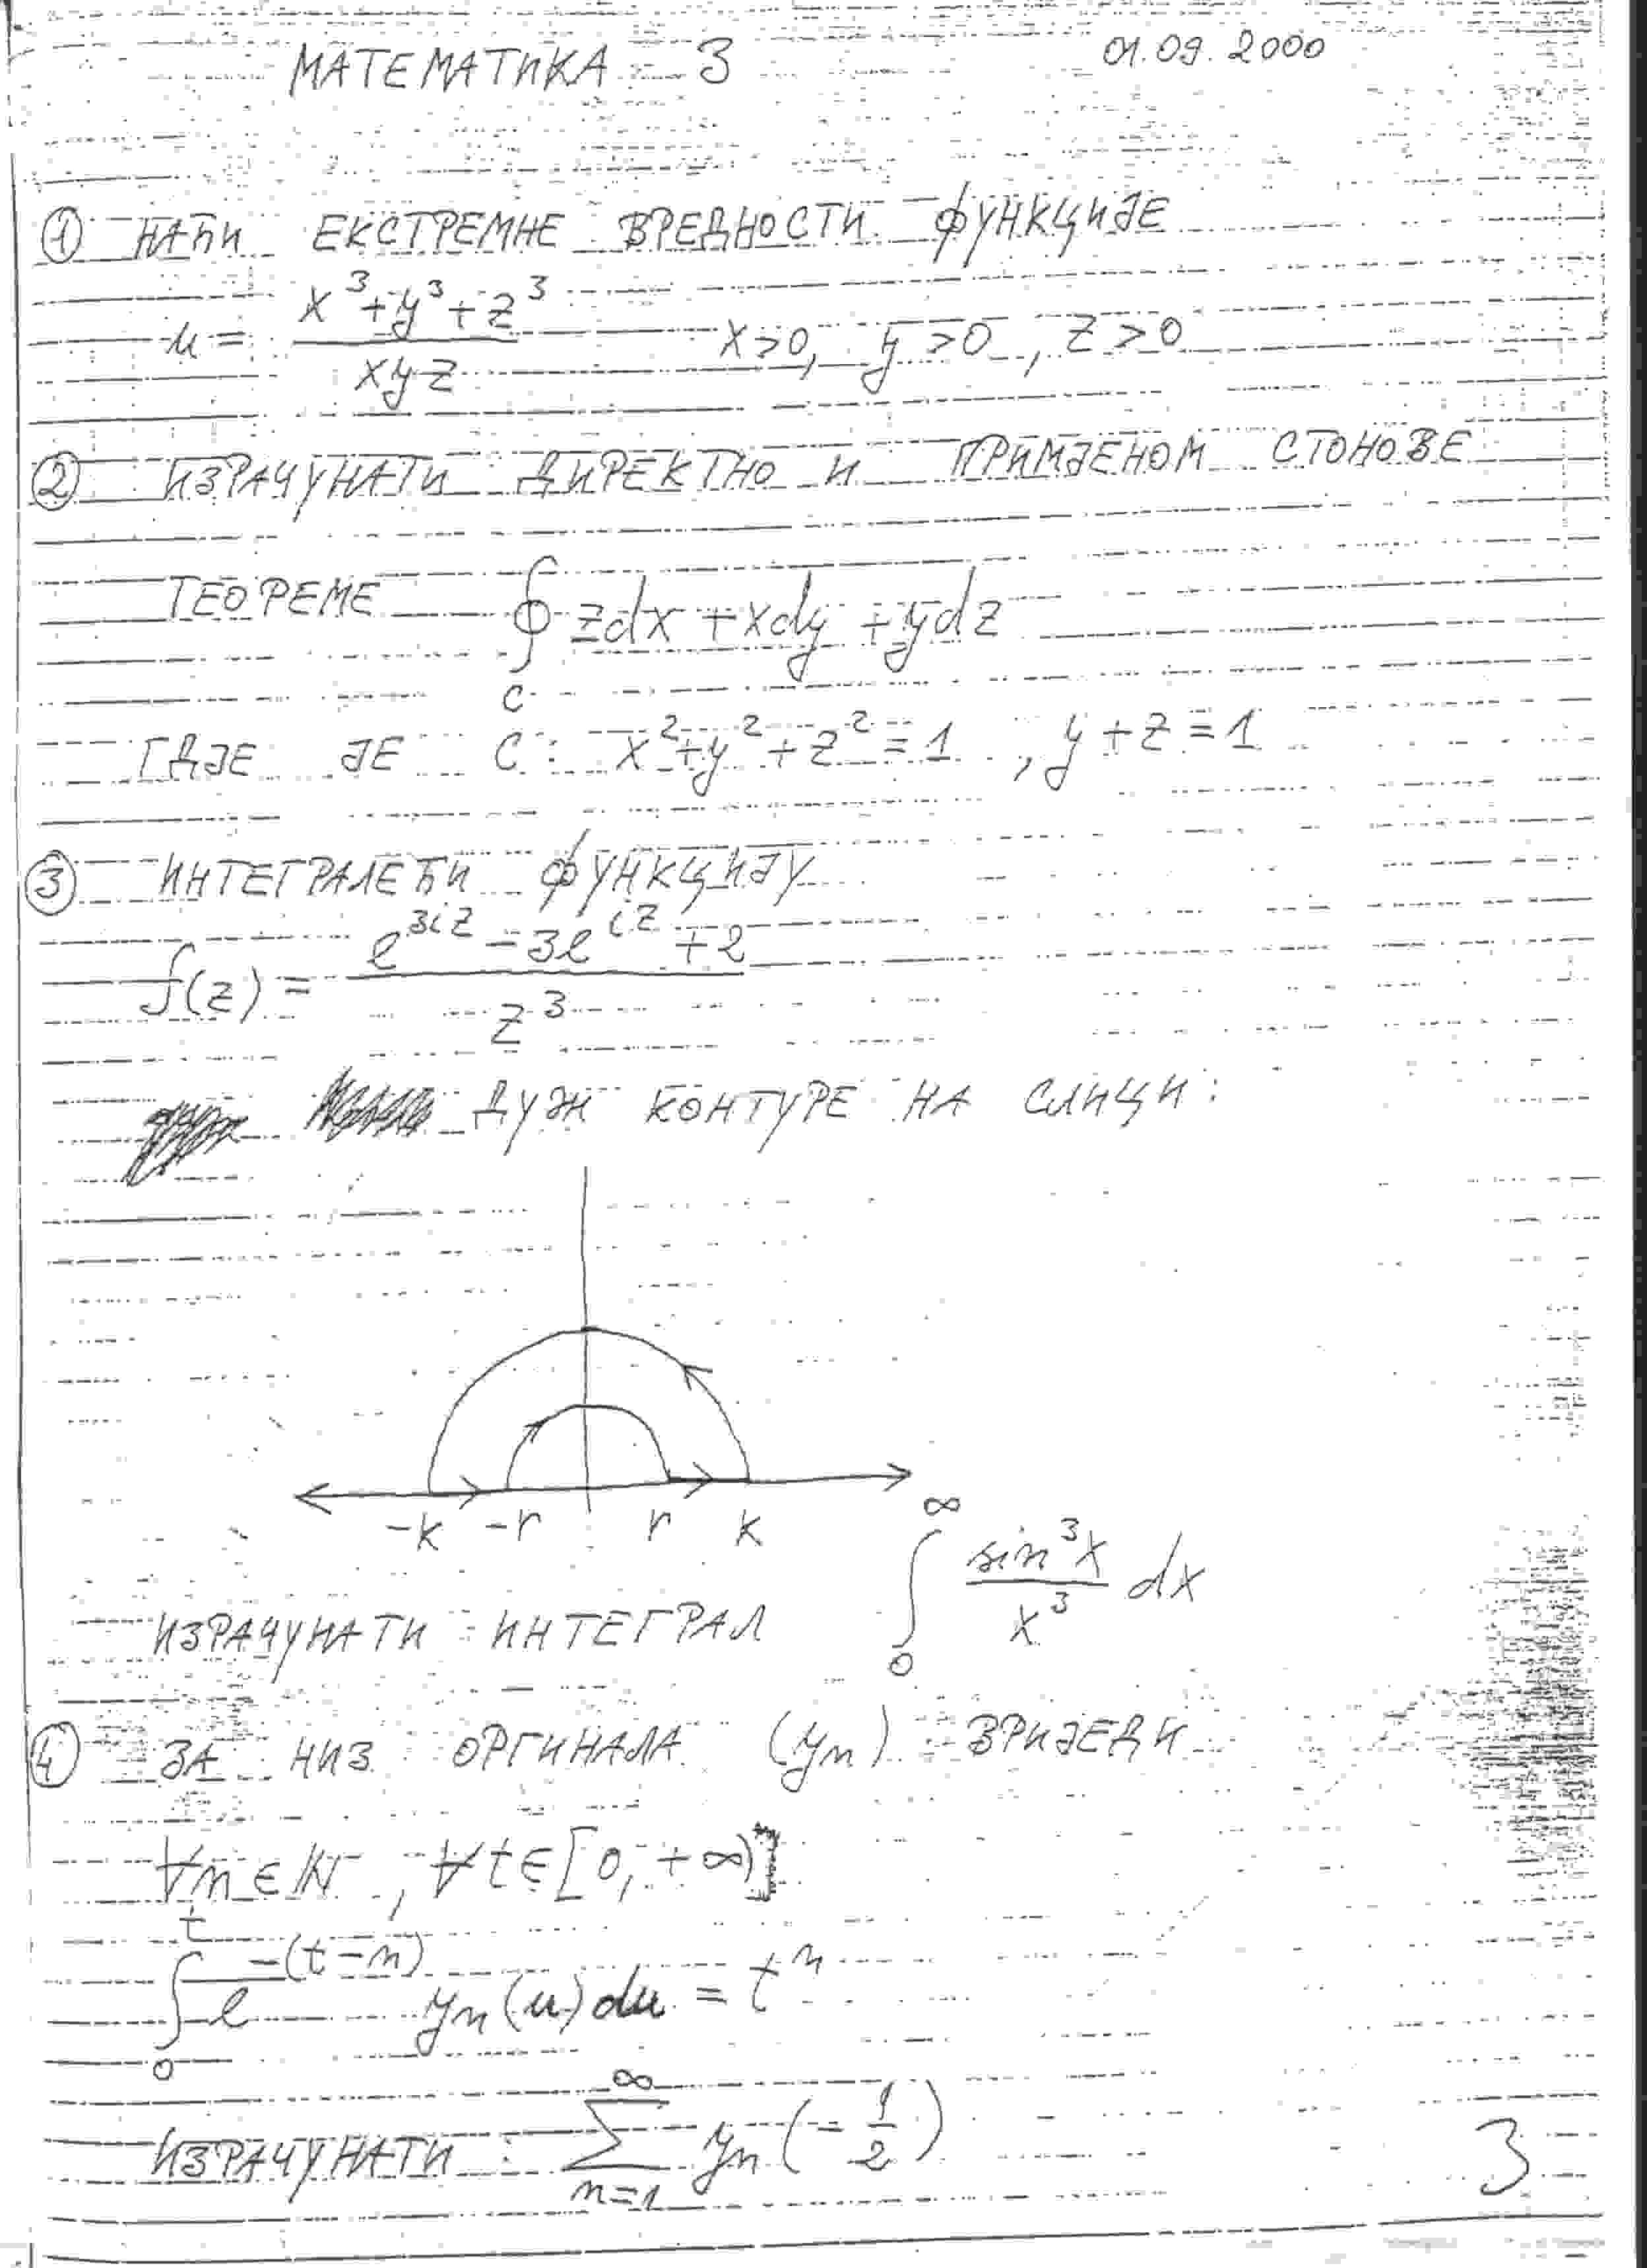 МАТЕМАТИКА 3 01.09.2000
① НАЋИ ЕКСТРЕМНЕ ВРЕДНОСТИ ФУНКЦИЈЕ
u = (x³+y³+z³)/(xyz) x>0, y>0, z>0
② ИЗРАЧУНАТИ ДИРЕКТНО И ПРИМЈЕНОМ СТОНОВЕ
ТЕОРЕМЕ ∮_C zdx + xdy + ydz
ГДЈЕ ЈЕ C: x²+y²+z²=1, y+z=1
③ ИНТЕГРАЛЕЋИ ФУНКЦИЈУ
f(z) = (e^{3iz} - 3e^{iz} + 2)/z³
ДУЖ КОНТУРЕ НА СЛИЦИ:
-k -r r k
ИЗРАЧУНАТИ ИНТЕГРАЛ ∫_0^∞ (sin³x)/(x³) dx
④ ЗА НИЗ ОРГИНАЛА (yn) ВРИЈЕДИ
∀n∈N, ∀t∈[0,+∞)
∫_0^t e^{-(t-n)} yn(u)du = t^n
ИЗРАЧУНАТИ: ∑_{n=1}^∞ yn(-1/2)
3